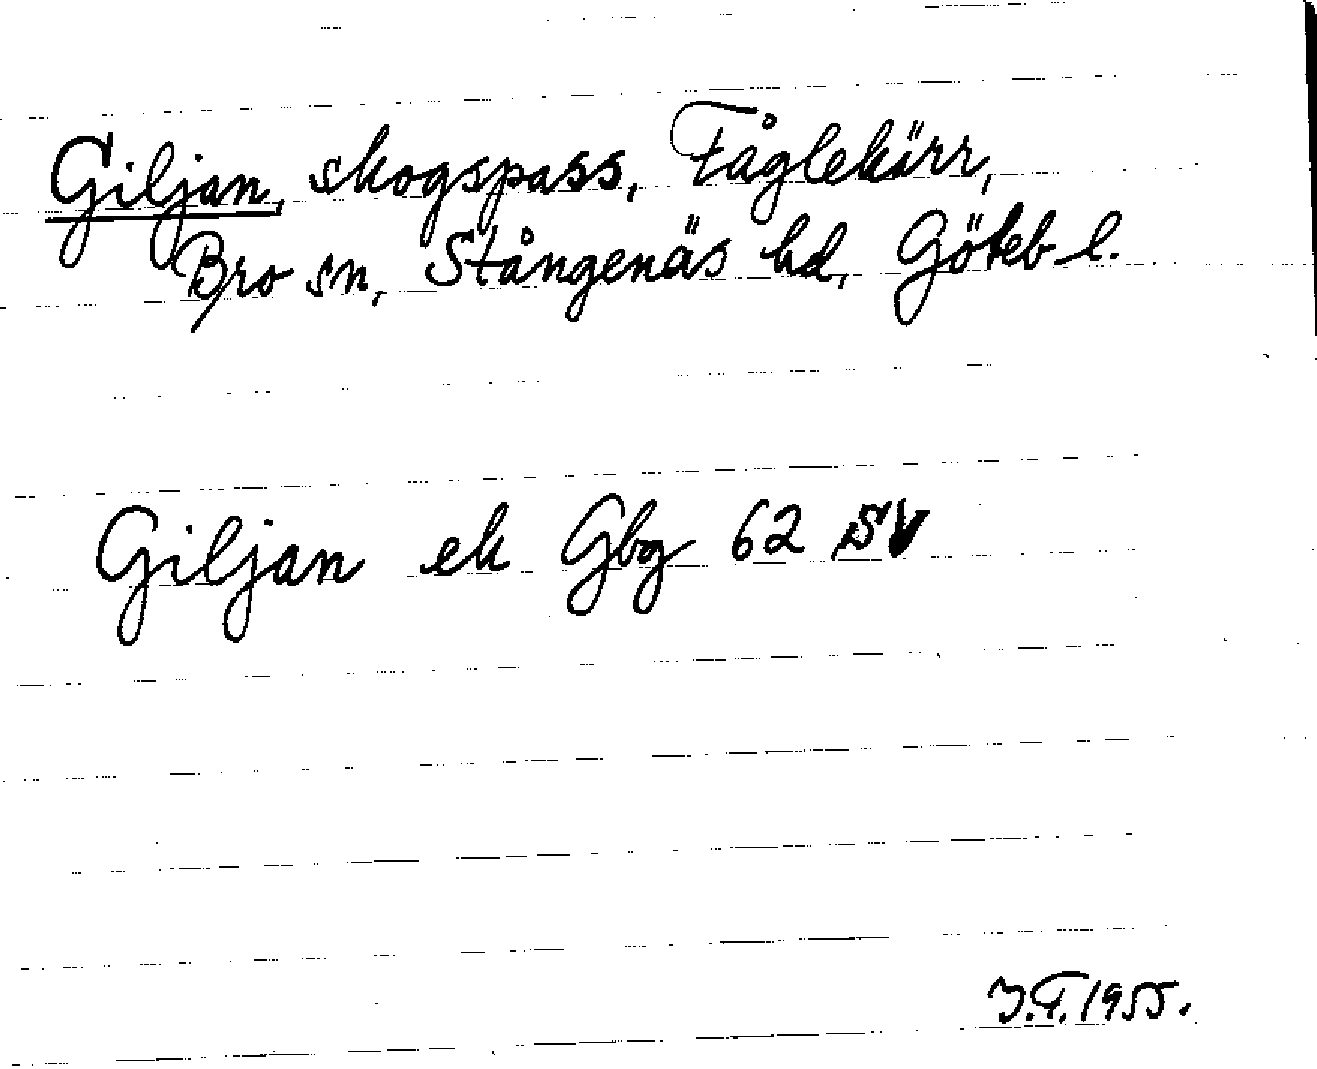 Giljan, skogspass, Fåglekärr,
Bro sn, Stångenäs hd, Göteb l.
Giljan ek Gbg 62 SV
J.F. 1955.